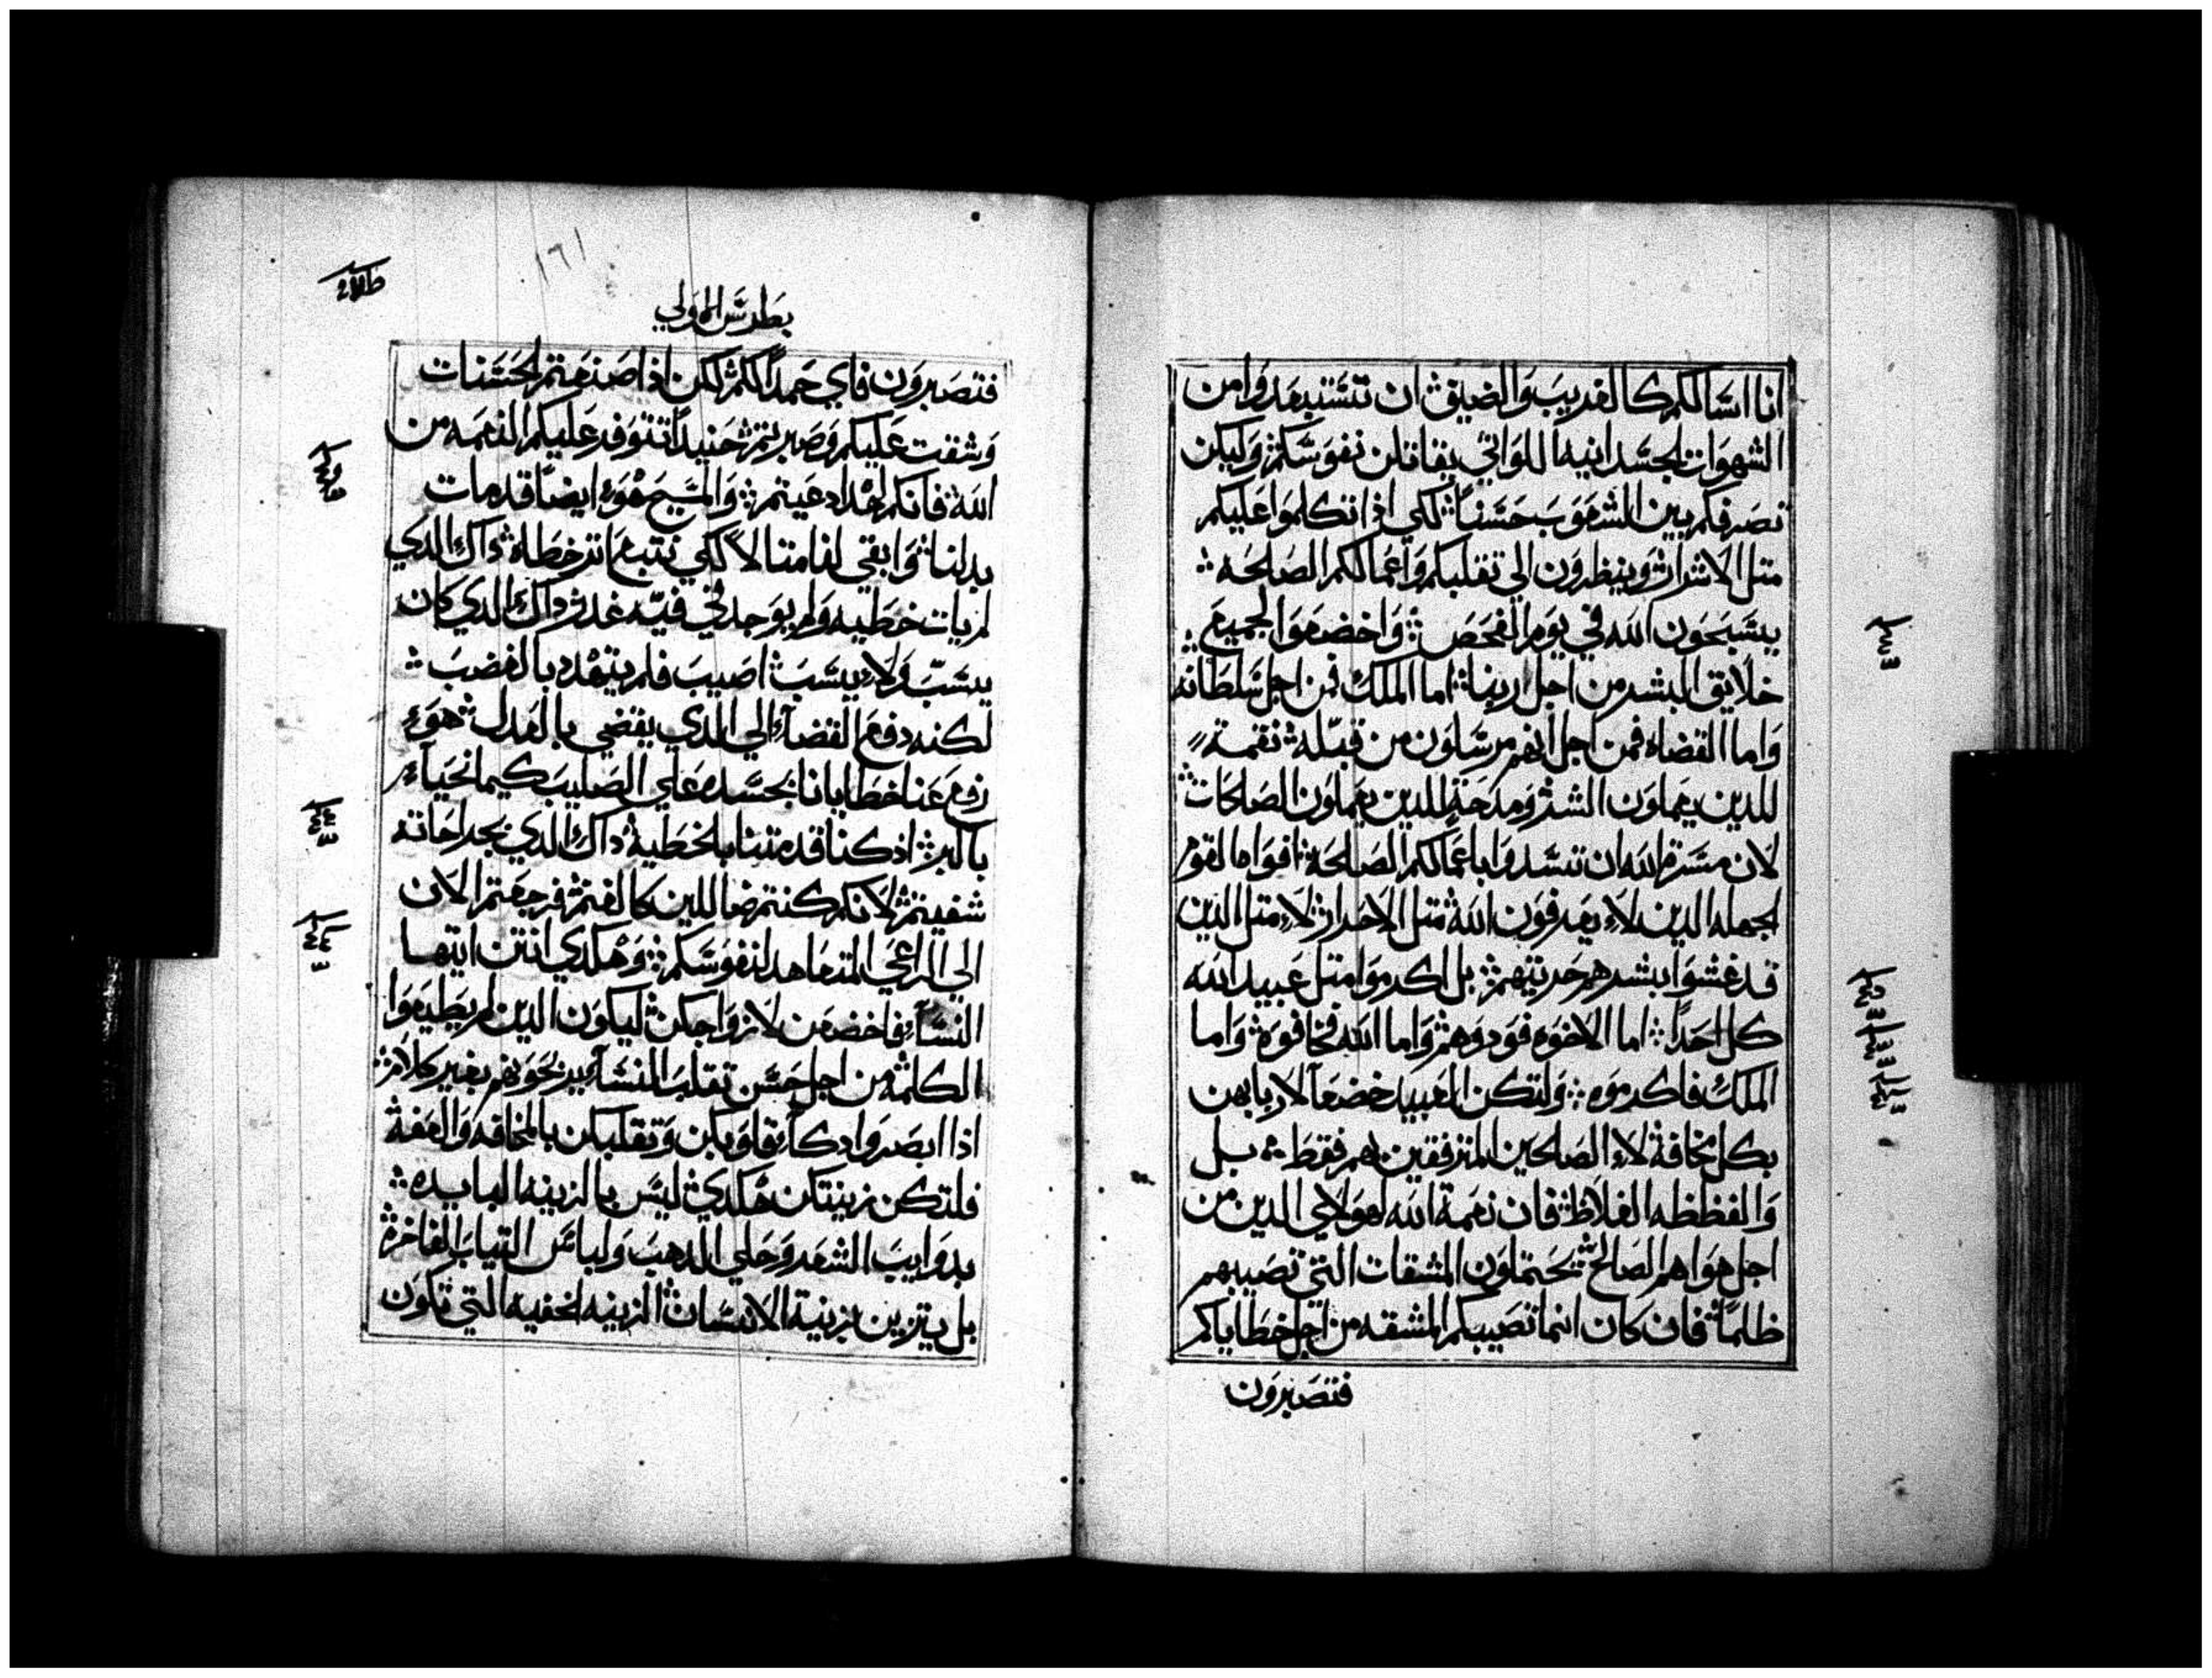 انا اسالكم كالقريب والضيق ان تستبعدوا من
الشهوات الجسدانيه اللواتي يقاتلن نفوسكم وليكن
تصرفكم بين الشعوب حسناً لكي اذا تكلموا عليكم
متل الاشرار وينظرون الي تقلبكم واعمالكم الصالحه
يسبحون الله في يوم الفحص واخضعوا لجميع
خلايق البشر من اجل ربنا اما الملك فمن اجل سلطانه
واما القضاه فمن اجل انهم مرسلون من قبله نقمة
للدين يعملون الشر ومدحة للدين يعملون الصالحات
لان مسرة الله ان تسدوا باعمالكم الصالحة افواه القوم
الجهله الدين لا يعرفون الله متل الاحرار لا متل الدين
قد غشوا بشرهم حريتهم بل اكرموا متل عبيد الله
كل احداً اما الاخوه فودوهم واما الله فخافوه واما
الملك فاكرموه ولتكن العبيد خضعاً لاربابهن
بكل مخافة لا الصالحين المترفقين بهم فقط بل
والفظظه الغلاظ فان نعمة الله لهولاي الدين من
اجل هواهم الصالح يحتملون المشقات التي تصيبهم
ظلماً فان كان انما تصيبكم المشقه من اجل خطاياكم
فتصبرون
١٦١
بطرس الاولي
فتصبرون فاي حمداً لكم لكن اذا صنعتم الحسنات
وشقت عليكم وصبرتم حينيداً تتوفر عليكم النعمه من
الله فانكم لهدا دعيتم والمسيح هو ايضاً قد مات
بدلنا وابقي لنا متالا لكي نتبع اتر خطاه داك الدي
لم يات خطيه ولم يوجد في فيه غدر داك الدي كان
يسب ولا يسب اصيب فلم يتهدد بالغضب
لكنه دفع القضآ الي الدي يقضي بالعدل هو
رفع عنا خطايانا بجسده علي الصليب كيما نحيا
بالبر اذ كنا قد متنا بالخطية داك الدي بجراحاته
شفيتم لانكم كنتم ضالين كالغنم فرجعتم الان
الي الراعي المتعاهد لنفوسكم وهكدي انتن ايتها
النسآ فاخضعن لازواجكن ليكون الدين لم يطيعوا
الكلمة من اجل حسن تقلب النسآ يربحونهم بغير كلام
اذا ابصروا دكآ قلوبكن وتقلبكن بالمخافه والعفة
فلتكن زينتكن هكدي ليس بالزينه البايده
بدوايب الشعر وحلي الدهب ولباس التياب الفاخرة
بل يتزين بزينة الانسان الزينه الخفيه التي تكون